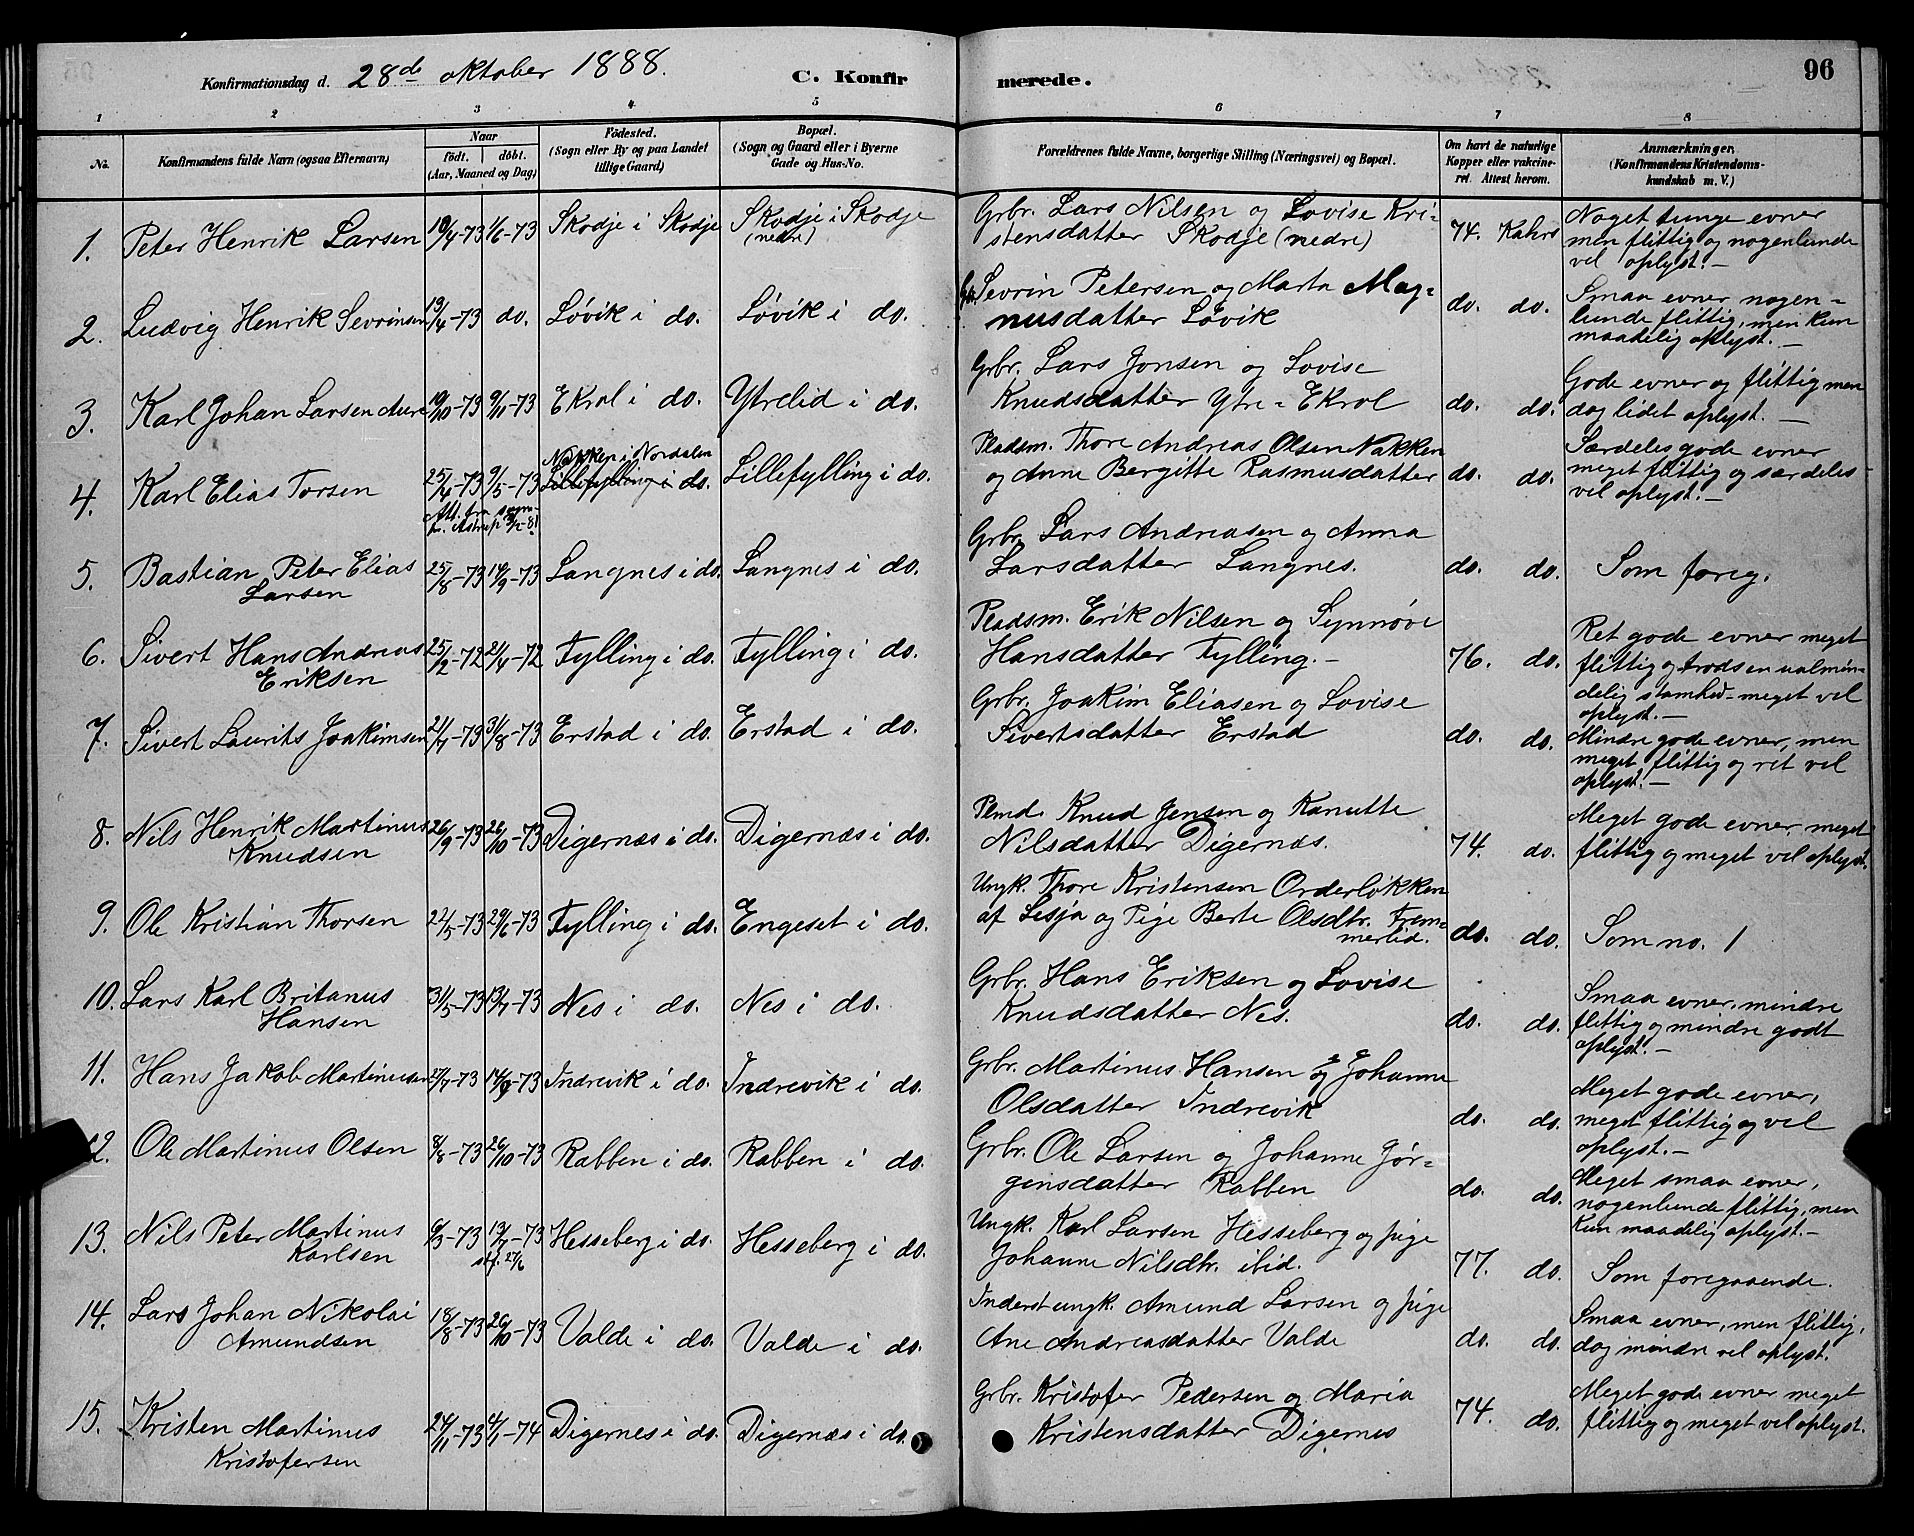 Konfirmationsdag d. 28de oktober 1888. C. Konfirmerede. 96
1 2 3 4 5 6 7 8
No. Konfirmandens fulde Navn (ogsaa Efternavn) Naar födt. döbt. (Aar, Maaned og Dag) Födested. (Sogn eller By og paa Landet tillige Gaard) Bopæl. (Sogn og Gaard eller i Byerne Gade og Hus-No. Forældrenes fulde Navne, borgerlige Stilling (Næringsvei) og Bopæl. Om havt de naturlige Kopper eller vakcineret. Attest herom. Anmærkninger. (Konfirmandens Kristendomskundskab m. V.)
1. Peter Henrik Larsen 10/4-73 1/6-73 Skodje i Skodje Skodje i Skodje (nedre) Grbr. Lars Nilsen og Lovise Kri-
stensdatter Skodje (nedre) 74. Kahrs Noget tunge evner
men flittig og nogenlunde
vel oplyst.-
2. Ludvig Henrik Sevrinsen 19/4-73 do. Løvik i do. Løvik i do. Sevrin Petersen og Marta Mag-
nusdatter Løvik do. do. Smaa evner nogen-
lunde flittig, men kun
maadelig oplyst.-
3. Karl Johan Larsen Aure 19/10-73 9/11-73 Ekrol i do. Ytrelid i do. Grbr. Lars Jonsen og Lovise
Knudsdatter Ytre-Ekrol do. do. Gode evner og flittig men
dog lidet oplyst.-
4. Karl Elias Torsen 25/4-73 9/5-73 Nakken i Nordalen
Lillefylling i do. Lillefylling i do. Pladsm. Thore Andreas Olsen Nakken
og Anne Bergitte Rasmusdatter do. do. Særdeles gode evner
meget flittig og særdeles
vel oplyst.-
Att. fra sogn-
5. Bastian Peter Elias
Larsen 25/8-73 14/9-73 Langnes i do. Langnes i do. Grbr. Lars Andreasen og Anna
Larsdatter Langnes. do. do. Som foreg.
6. Sivert Hans Andreas
Eriksen 25/2-72 21/4-72 Fylling i do. Fylling i do. Pladsm. Erik Nilsen og Synnøve
Hansdatter Fylling.- 76. do. Ret gode evner meget
flittig og trods en ualmin-
delig stamhed- meget vel
oplyst.-
7. Sivert Laurits Joakimsen 21/7-73 31/8-73 Erstad i do. Erstad i do. Grbr. Joakim Eliasen og Lovise
Sivertsdatter Erstad do. do. Mindre gode evner, men
meget flittig og ret vel
oplyst.-
8. Nils Henrik Martinus
Knudsen 26/9-73 26/10-73 Digernæs i do. Digernæs i do. Plmd. Knud Jensen og Kanutte
Nilsdatter Digernæs. 74. do. Meget gode evner meget
flittig og meget vel oplyst.
9. Ole Kristian Thorsen 22/5-73 29/6-73 Fylling i do. Engeset i do. Ungk. Thore Kristensen Orderløkken
af Lesja og Pige Berte Olsdtr. Frem-
merlid. do. do. Som no. 1
10. Lars Karl Britanus
Hansen 31/5-73 13/7-73 Nes i do. Nes i do. Grbr. Hans Eriksen og Lovise
Knudsdatter Nes. do. do. Smaa evner, mindre
flittig og mindre godt
oplyst.-
11. Hans Jakob Martinussen 27/7-73 14/9-73 Indrevik i do. Indrevik i do. Grbr. Martinus Hansen og Johanne
Olsdatter Indrevik do. do. Meget gode evner,
meget flittig og vel
oplyst.-
12. Ole Martinus Olsen 8/8-73 26/10-73 Rabben i do. Rabben i do. Grbr. Ole Larsen og Johanne Jør-
gensdatter Rabben do. do. Meget smaa evner,
nogenlunde flittig, men
kun maadelig oplyst.-
13. Nils Peter Martinus
Karlsen 6/3-73 13/7-73 Hesseberg i do. Hesseberg i do. Ungk. Karl Larsen Hesseberg og pige
Johanne Nilsdtr. ibid. 77. do. Som foregaaende.
14. Lars Johan Nikolai
Amundsen 18/8-73 26/10-73 Valde i do. Valde i do. Inderst ungk. Amund Larsen og pige
Ane Andreasdatter Valde do. do. Smaa evner, men flittig,
dog mindre vel oplyst.
15. Kristen Martinus
Kristofersen 24/11-73 4/1-74 Digernes i do. Digernæs i do. Grbr. Kristofer Pedersen og Maria
Kristensdatter Digernes 74. do. Meget gode evner meget
flittig og meget vel oplyst.